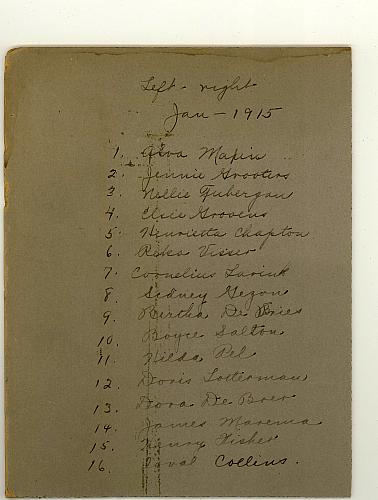 Left - right
Jan - 1915
1. Alva Mapin
2. Jennie Grooters
3. Nellie Tubergan
4. Elsie Groovens
5. Henrietta Chapton
6. Reka Visser
7. Cornelius Larink
8. Sedney Gezon
9. Bertha De Bries
10. Boyce Salton
11. Hilda Pel
12. Doris Lotterman
13. Dora De Boer
14. James Marema
15. Henry Fisher
16. Loval Collins.